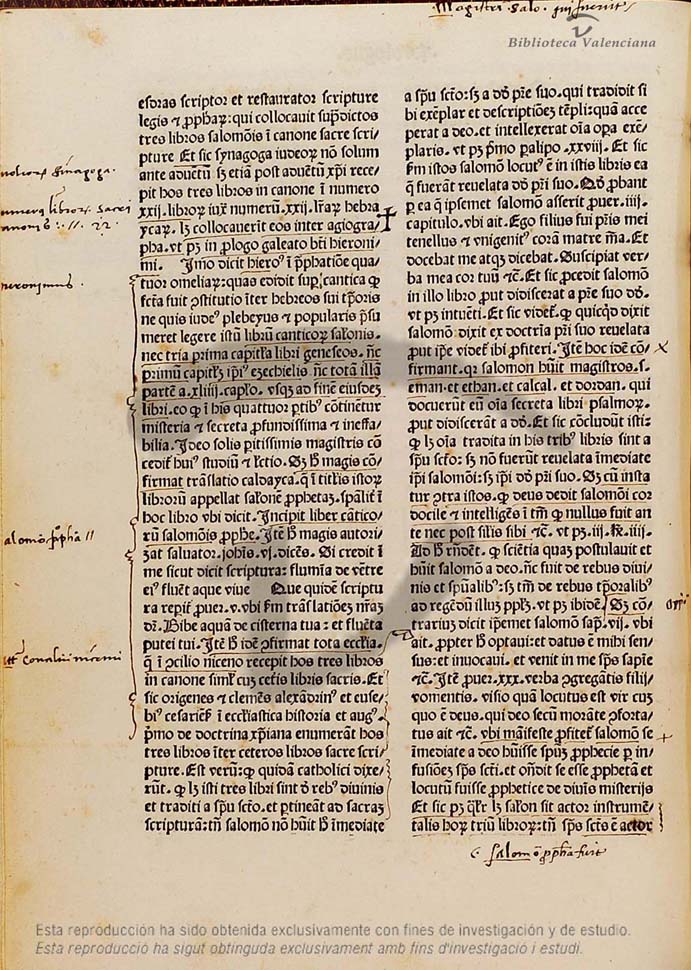 Magistri Salo. qui fuerūt
Biblioteca Valenciana
esdras scriptor et restaurator scripture
legis ⁊ ꝓphaꝝ: qui collocauit sup̄dictos
tres libros salomōis ī canone sacre scri/
pture Et sic synagoga iudeoꝝ nō solum
ante aduētū sꝫ etiā post aduētū xp̄i rece/
pit hos tres libros in canone ī numero
xxij. libroꝝ iux̄ numerū .xxij. lr̄aꝝ hebra
ycaꝝ. lꝫ collocauerit eos inter agiogra/
pha. vt pꝫ in ꝓlogo galeato bt̄i hieroni/
mi. Jmo dicit hieroꝰ ī p̄phatiōe qua/
tuor omeliaꝝ: quas edidit sup̄ cantica ꝙ
fctā fuit ꝯstitutio īter hebreos sui tp̄oris
ne quis iudeꝰ plebeyus ⁊ popularis p̄su
meret legere istū librū canticoꝝ salōnis.
nec tria prima capitl'a libri geneseos. n̄c
primū capitl'ꝫ ip̄iꝰ ezechielis n̄c totā illā
partē a .xliiij. cap̄lo. vsqꝫ ad finē eiusdeꝫ
libri. eo ꝙ ī his quattuor ꝑtibꝰ cōtinētur
misteria ⁊ secreta ꝓfundissima ⁊ ineffa/
bilia. Jdeo solis peritissimis magistris cō
cedit̄ huiꝰ studiū ⁊ lectio. Sꝫ hͦ magis cō/
firmat trāslatio caldayca. q̄ ī titl'is istoꝝ
libroꝝ appellat salōnē ꝓphetaꝫ. spāliṫ ī
hoc libro vbi dicit. Jncipit liber cātico/
rū salomōis ꝓphe. Jtē hͦ magis autori/
zat saluator. joh̄is. vj. dicēs. Qui credit ī
me sicut dicit scriptura: flumīa de vētre
eiꝰ fluēt aque viue Que quidē scriptu
ra reꝑit̄ ꝓuer. v. vbi fm̄ trāslatiōeꝫ nr̄aꝫ
dr̄. Bibe aquā de cisterna tua: et fluēta
putei tui. Jtē hͦ idē ꝯfirmat tota eccl̄ia.
q̄ ī ꝯcilio niceno recepit hos tres libros
in canone siml' cuꝫ cet̄is libris sacris. Et
sic origenes ⁊ clemēs alexādrinꝰ et euse/
biꝰ cesariēs̄ ī eccl̄iastica historia et augꝰ.
p̄mo de doctrina xp̄iana enumerāt hos
tres libros īter ceteros libros sacre scri/
pture. Est verū: ꝙ quidā catholici dixe/
rūt. ꝙ lꝫ isti tres libri sint ō rebꝰ diuinis
et traditi a sp̄u scto. et ꝑtineāt ad sacraꝫ
scripturā: tn̄ salomō nō hūit hͦ īmediate
a sp̄u scto: sꝫ a dō pr̄e suo. qui tradidit si
bi exēplar et descriptiōeꝫ tēpli: quā acce
perat a deo. et intellexerat oīa oꝑa exē/
plaris. vt pꝫ p̄mo paralipo .xxviij. Et sic
fm̄ istos salomō locutꝰ ē in istis libris ea
q̄ fuerāt reuelata dō pr̄i suo. Qd̄ ꝓbant
ꝑ ea q̄ ipsemet salomō asserit ꝓuer. iiij.
capitulo. vbi ait. Ego filius fui pr̄is mei
tenellus ⁊ vnigenitꝰ corā matre m̄a. Et
docebat me atqꝫ dicebat. Suscipiat ver/
ba mea cor tuū ⁊c. Et sic ꝓcedit salomō
in illo libro ꝓut didiscerat a pr̄e suo dō.
vt pꝫ intuēti. Et sic videt̄. ꝙ quicqd̄ dixit
salomō dixit ex doctrīa pr̄i suo reuelata
ꝓut ip̄e videt̄ ibi ꝓfiteri. Jtē hoc idē cō/
firmant. qꝛ salomon hūit magistros. s.
eman. et ethan. et calcal. et dordan. qui
docuerūt eū oīa secreta libri psalmoꝝ.
ꝓut didiscerāt a dō. Et sic cōcludūt isti:
ꝙ lꝫ oīa tradita in his tribꝰ libris sint a
sp̄u scto: sꝫ nō fuerūt reuelata īmediate
ip̄i salomōi: sꝫ ip̄i dō pr̄i suo. Sꝫ cū insta
tur ꝯtra istos. ꝙ deus dedit salomōi cor
docile ⁊ intelligēs ī tm̄ ꝙ nullus fuit an
te nec post silis sibi ⁊c. vt pꝫ .iij. Re. iiij.
Ad hͦ rn̄dēt. ꝙ sciētia quaꝫ postulauit et
hūit salomō a deo. n̄c fuit de rebus diui/
nis et spūalibꝰ: sꝫ tm̄ de rebus tp̄oralibꝰ
ad regēdū illuꝫ ppl'ꝫ. vt pꝫ ibidē. Sꝫ cō/
trariuꝫ dicit ip̄emet salomō sap̄. vij. vbi
ait. ꝓpter hͦ optaui: et datus ē mihi sen/
sus: et inuocaui. et venit in me sp̄s sapīe
⁊c. Jtē ꝓuer. xxx. verba ꝯgregātis filij
vomentis. visio quā locutus est vir cuꝫ
quo ē deus. qui deo secū morāte ꝯforta/
tus ait ⁊c. vbi māifeste ꝓfitet̄ salomō se
īmediate a deo hūisse spūꝫ ꝓphecie ꝑ in/
fusiōeꝫ sp̄s scti. et on̄dit se esse ꝓphetā et
locutū fuisse ꝓphetice de diuīs misterijs
Et sic pꝫ ql'r lꝫ salōn sit actor instrumē/
talis hoꝝ triū libroꝝ: tn̄ sp̄s sctūs ē actor
hieronimus
salomō ꝓpha fuit
Esta reproducción ha sido obtenida exclusivamente con fines de investigación y de estudio.
Esta reproducció ha sigut obtinguda exclusivament amb fins d'investigació i estudi.